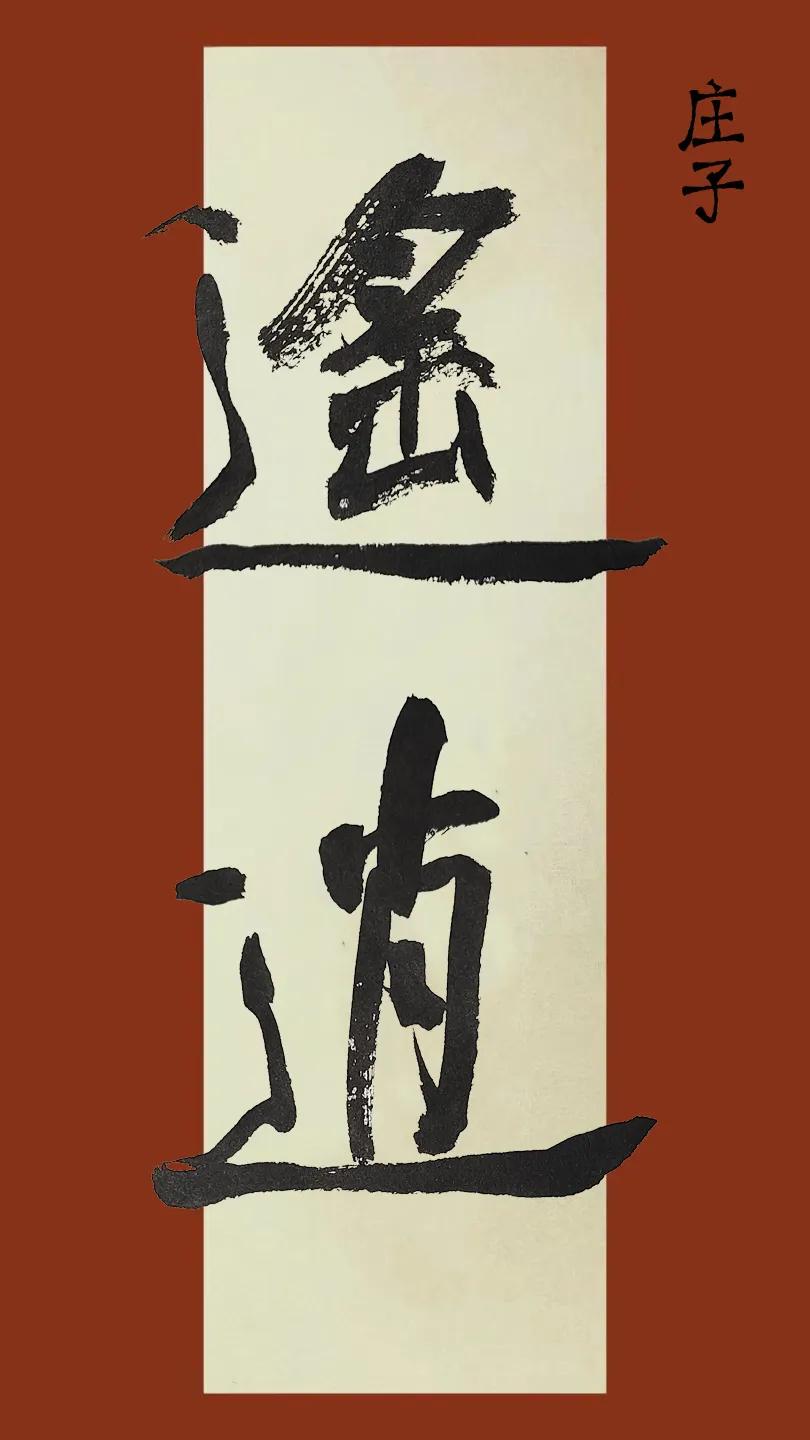 庄子
遥
逍